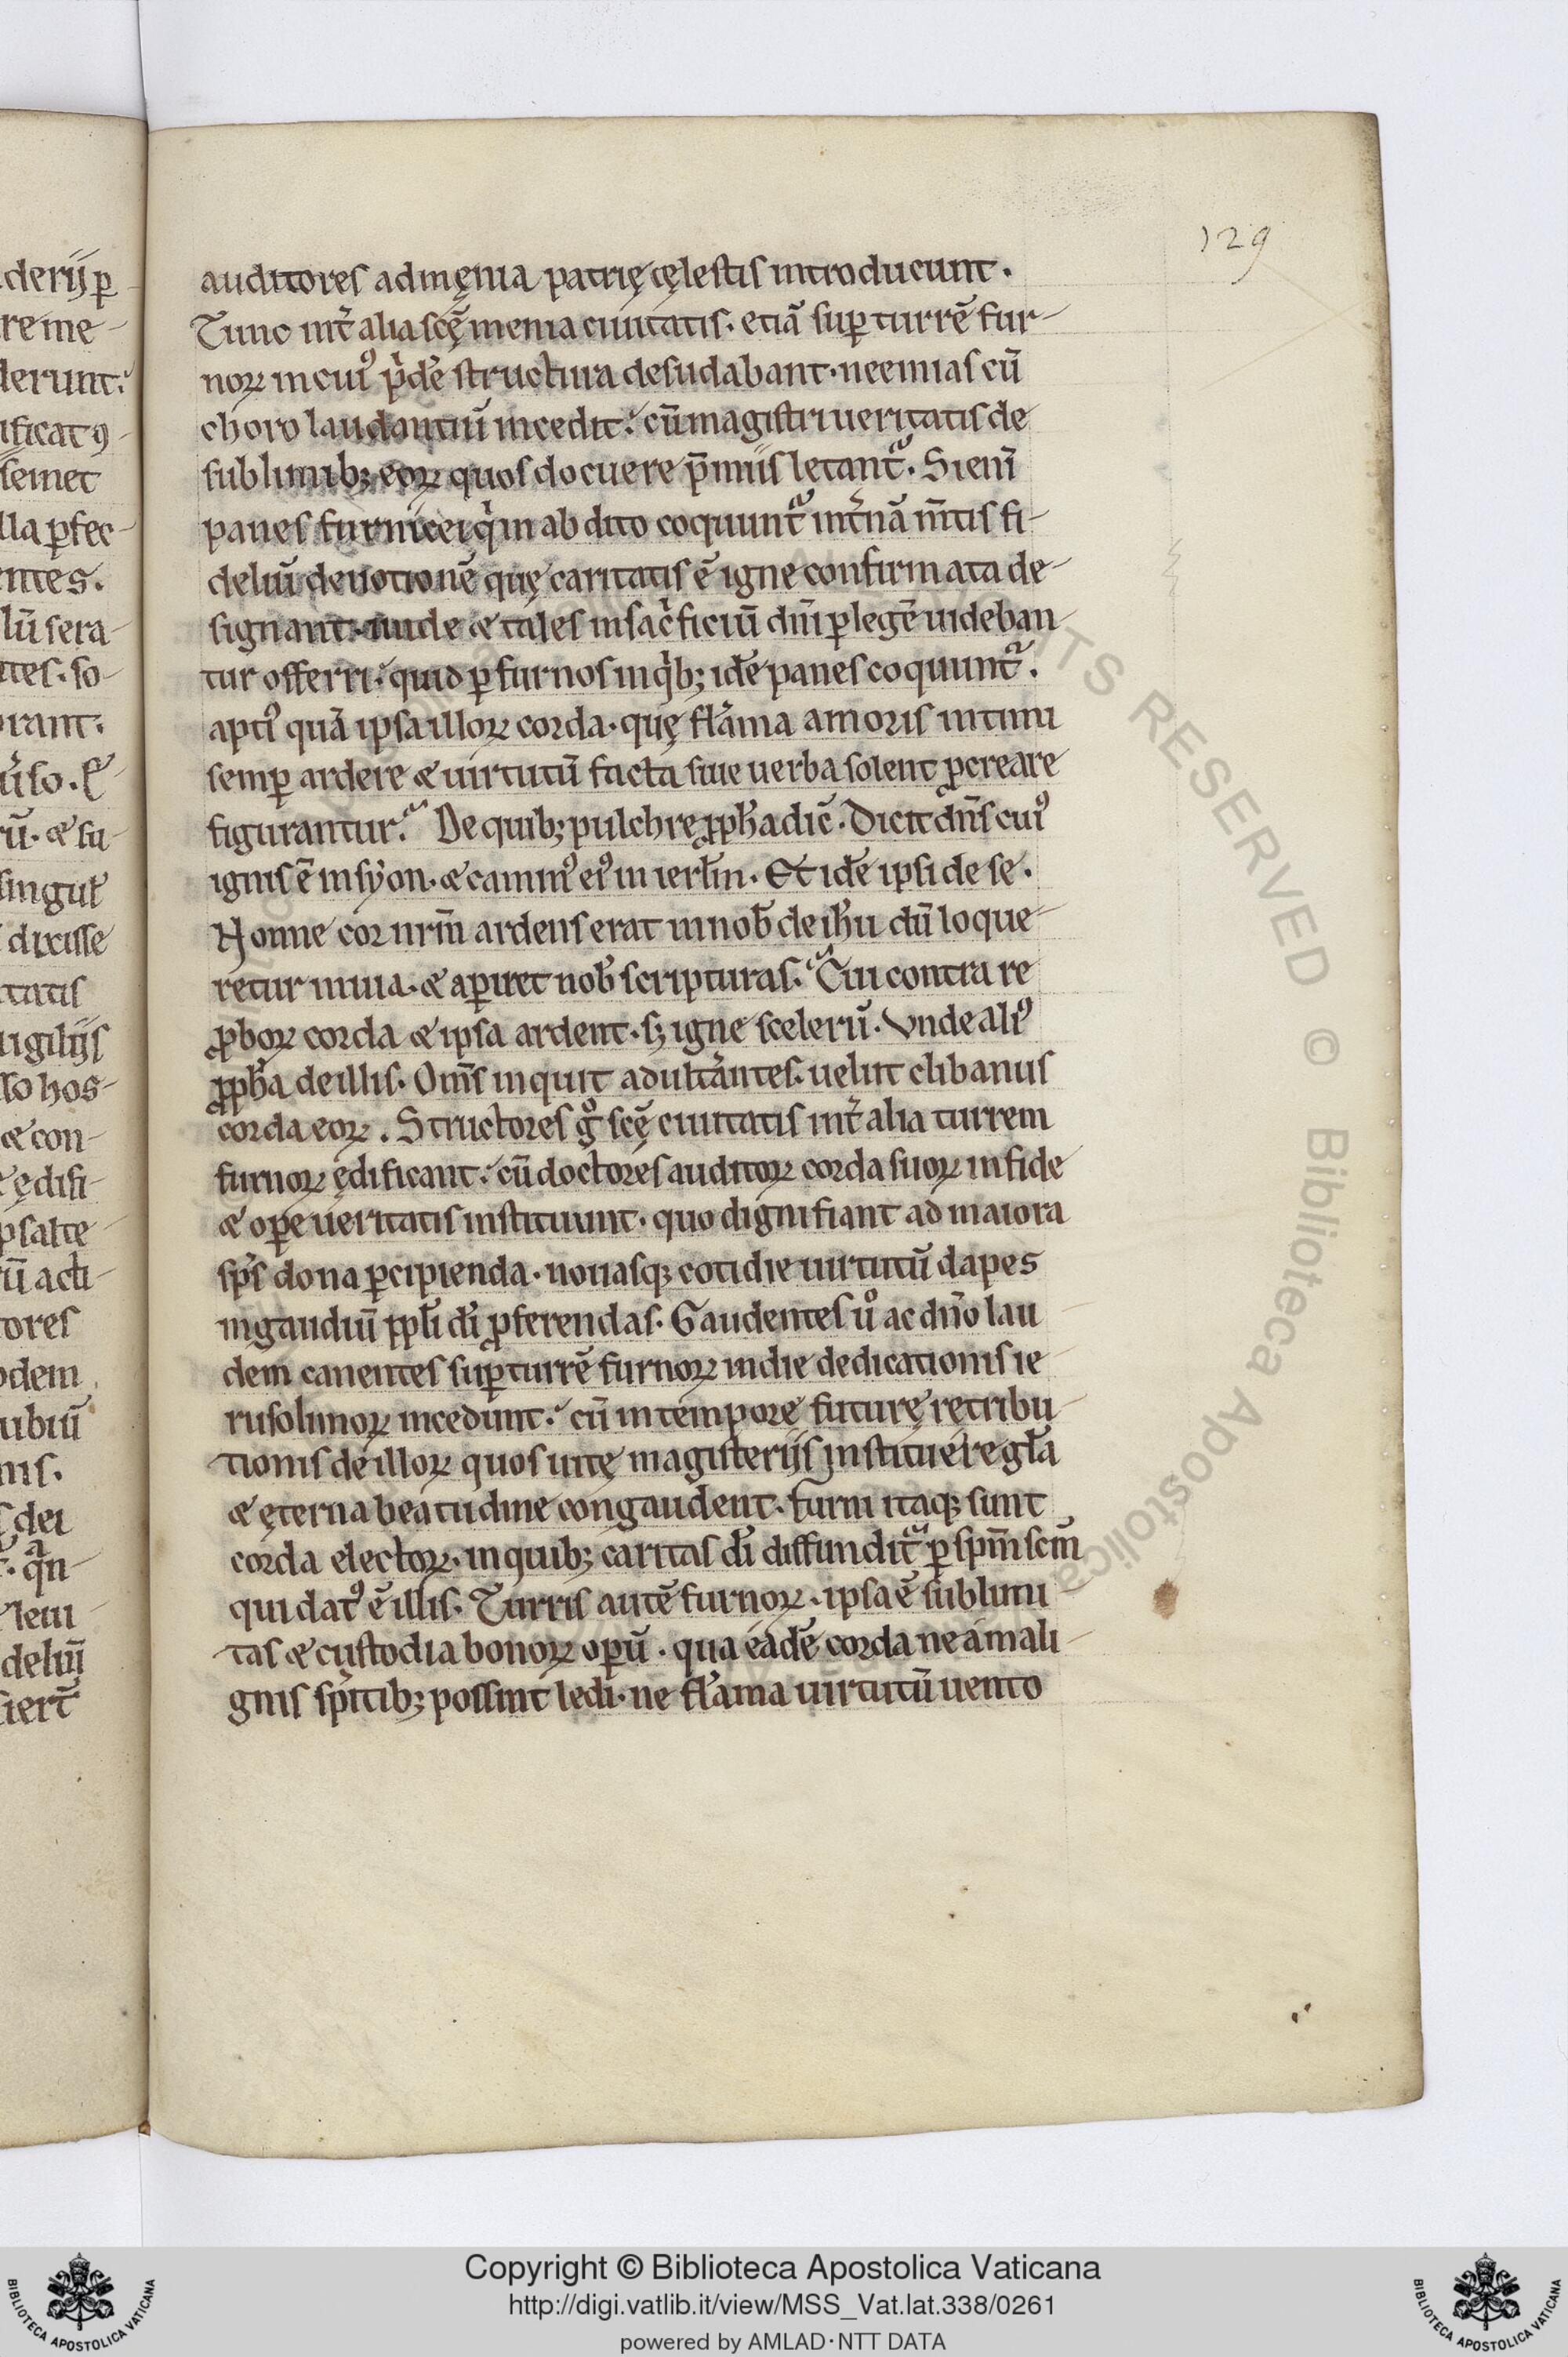 129
auditores ad męnia patrię cęlestis introducunt.
Tunc int̉ alia scę̄ menia ciuitatis. etiā sup̱ turrē fur-
noꝝ in cuiꝰ p̓dē structura desudabant. neemias cū
choro laudantiū incedit. cū magistri ueritatis de
sublimibꝫ eoꝝ quos docuere p̄miis letant᷑. Si enī
panes furnicei q̓ in abdito coquunt᷑ int̓nā m̄tis fi-
deliū deuotionē quę caritatis ē igne confirmata de-
signant. unde & tales in sac̓ficiū dn̄i p̱ legē uideban-
tur offerri. quid p̱ furnos in q̓bꝫ idē panes coquunt᷑.
aptiꝰ quā ipsa illoꝝ corda. quę flāma amoris intimi
semp̱ ardere & uirtutū facta siue uerba solent ꝓcreare
figurantur. De quibꝫ pulchre ꝓph̄a dic̄. Dicit dn̄s cuiꝰ
ignis ē in syon. & caminꝰ eiꝰ in ierl̄m. Et idē ipsi de se.
Nonne cor nrm̄ ardens erat in nob̄ de ih̄u dū loque-
retur in uia. & ap̱iret nob̄ scripturas. At̓ contra re
ꝓboꝝ corda & ipsa ardent. sꝫ igne scelerū. Vnde aliꝰ
ꝓph̄a de illis. Om̄s inquit adult̓antes. uelut clibanus
corda eoꝝ. Structores gͦ scę̄ ciuitatis int̉ alia turrem
furnoꝝ ędificant. cū doctores auditoꝝ corda suoꝝ in fide
& op̱e ueritatis instituunt. quo digni fiant ad maiora
sp̄s dona p̱cipienda. nouasqꝫ cotidie uirtutū dapes
in gaudiū ppl̄i dī ꝓferendas. Gaudentes uͦ ac dn̄o lau
dem canentes sup̱ turrē furnoꝝ in die dedicationis ie-
rusolimoꝝ incedunt. cū in tempore futurę retribu-
tionis de illoꝝ quos uitę magisteriis instituere gl̄a
& ęterna beatudine congaudent. Furni itaqꝫ sunt
corda electoꝝ. in quibꝫ caritas dī diffundit᷑ p̱ sp̄m scm̄
qui datꝰ ē illis. Turris autē furnoꝝ. ipsa ē sublimi-
tas & custodia bonoꝝ op̱ū. qua eadē corda ne a mali-
gnis sp̓itibꝫ possint ledi. ne flāma uirtutū uento
ALL RIGHTS RESERVED © Biblioteca Apostolica
Copyright © Biblioteca Apostolica Vaticana
http://digi.vatlib.it/view/MSS_Vat.lat.338/0261
powered by AMLAD·NTT DATA
BIBLIOTECA APOSTOLICA VATICANA
BIBLIOTECA APOSTOLICA VATICANA